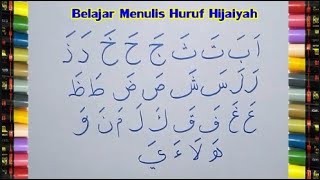 Belajar Menulis Huruf Hijaiyah
اَ بَ تَ ثَ جَ حَ خَ دَ ذَ
رَ زَ سَ شَ صَ ضَ طَ ظَ
عَ غَ فَ قَ كَ لَ مَ نَ وَ
هَ لَا ءَ يَ